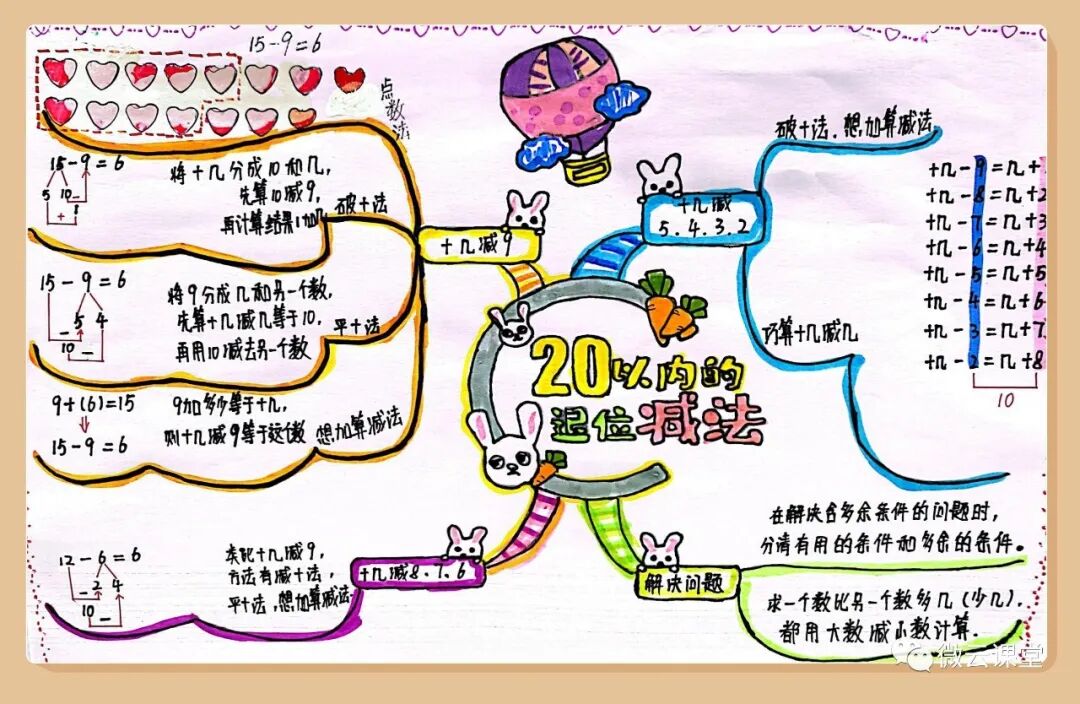 15-9=6
点数法
15-9=6
5 10
+ 1
将十几分成10和几,
先算10减9,
再计算结果1加几
破十法
十几减9
15-9=6
5 4
10
将9分成几和另一个数,
先算十几减几等于10,
再用10减去另一个数
平十法
9+(6)=15
15-9=6
9加多少等于十几,
则十几减9等于这个数
想加算减法
12-6=6
2 4
10
类比十几减9,
方法有减十法,
平十法,想加算减法
十几减8.7.6
20以内的
退位减法
十几减
5.4.3.2
破十法.想加算减法
巧算十几减几
十几-9=几+1
十几-8=几+2
十几-7=几+3
十几-6=几+4
十几-5=几+5
十几-4=几+6
十几-3=几+7
十几-2=几+8
10
解决问题
在解决含多余条件的问题时,
分清有用的条件和多余的条件。
求一个数比另一个数多几(少几).
都用大数减小数计算.
微云课堂